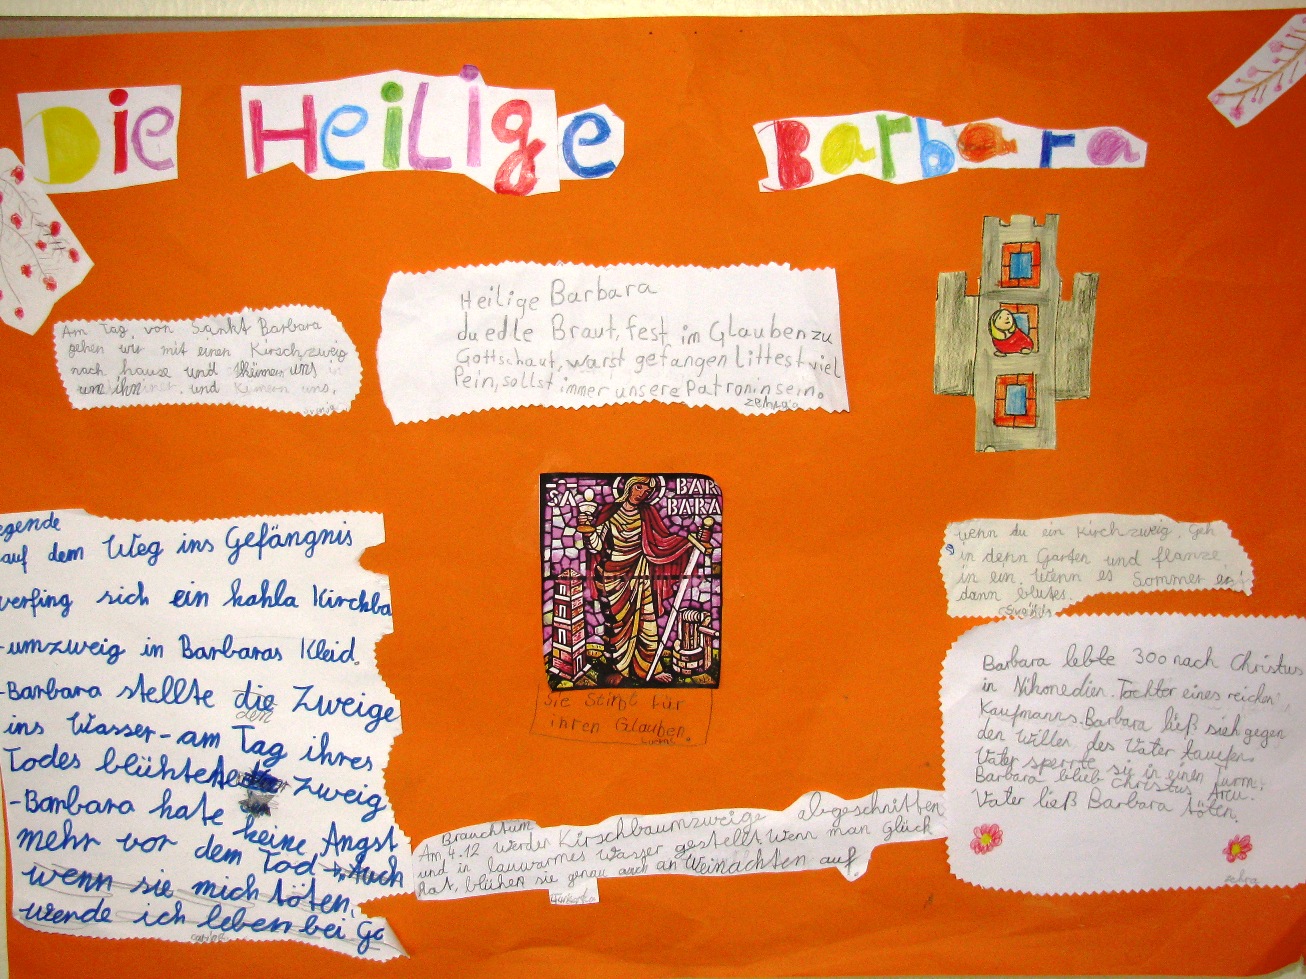 Die Heilige Barbara
Am Tag von Sankt Barbara
gehen wir mit einen Kirschzweig
nach hause und kümern uns
um ihn und kümern uns,
Heilige Barbara
du edle Braut, fest im Glauben zu
Gott schaut, warst gefangen littest viel
Pein, sollst immer unsere Patronin sein.
SA BAR
BARA
Sie stirbt für
ihren Glauben.
egende
auf dem Weg ins Gefängnis
verfing sich ein kahla Kirchba
-umzweig in Barbaras Kleid.
-Barbara stellte die Zweige
den
ins Wasser - am Tag ihres
Todes blühte Zweig
-Barbara hate keine Angst
mehr vor dem Tod → Auch
wenn sie mich töten,
werde ich leben bei Go
Brauchtum
Am 4.12 werder Kirschbaumzweige abgeschnitten
und in lauwarmes Wasser gestellt. Wenn man Glück
Hat, blühen sie genau auch an Weinachten auf.
wenn du ein Kirchzweig, geh
in denn Garten und flanze
in ein. Wenn es Sommer er
dann blutes.
Barbara lebte 300 nach Christus
in Nikomedien. Tochter eines reichen
Kaufmanns. Barbara ließ sich gegen
den Willen des Vater taufen.
Vater sperrte sie in einen Turm.
Barbara blieb Christus treu.
Vater ließ Barbara töten.
zehra